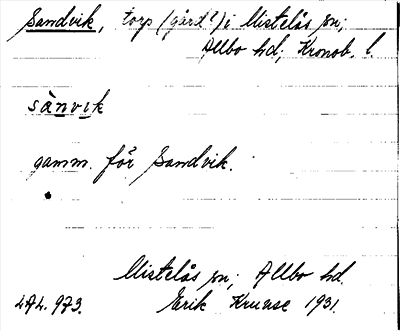 Sandvik, torp (gård?) i Mistelås sn;
Allbo hd; Kronob. l.
sànvik
gamm. för Sandvik.
Mistelås sn; Allbo hd.
LAL. 973. Erik Kruuse 1931.